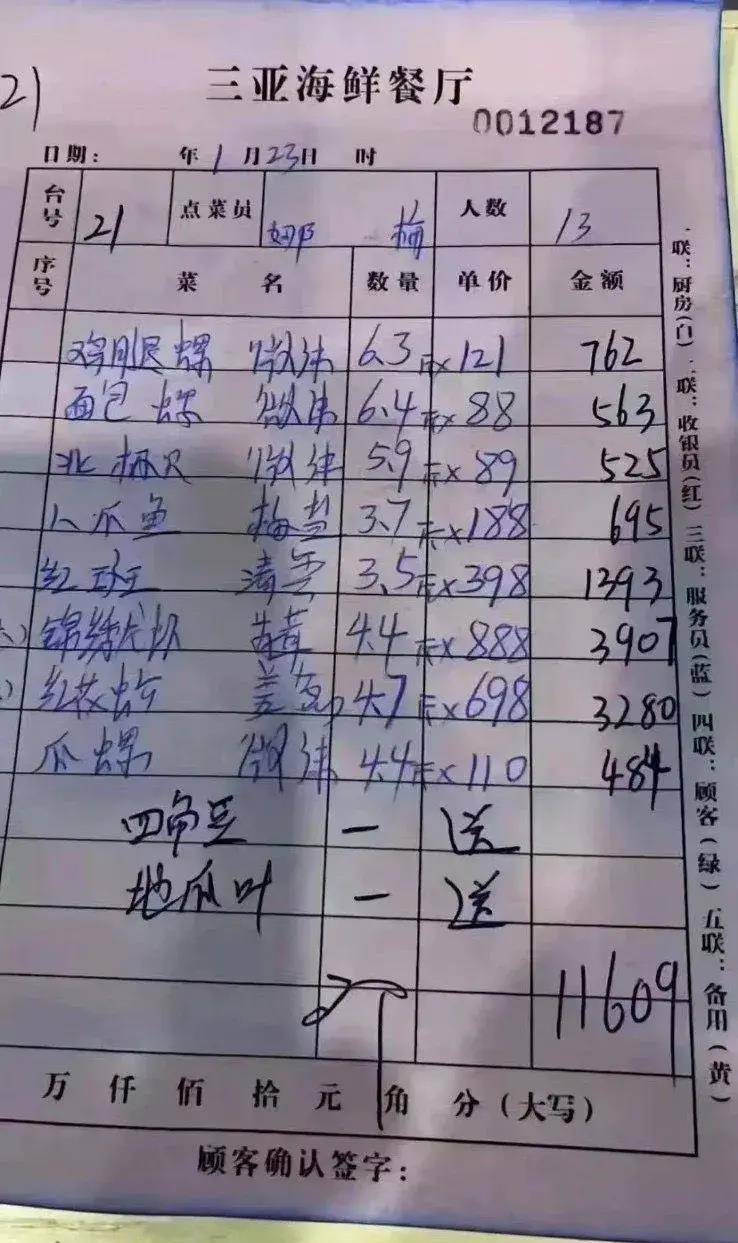 21
三亚海鲜餐厅
0012187
日期: 年1月23日 时
台号 21 点菜员 娜 梅 人数 13
序号 菜名 数量 单价 金额
鸡腿螺 6.3斤×121 762
面包螺 6.4斤×88 563
北极贝 5.9斤×89 525
八爪鱼 3.7斤×188 695
红斑 清蒸 3.5斤×398 1393
锦绣龙虾 4.4斤×888 3907
红花蟹 4.7斤×698 3280
瓜螺 4.4斤×110 484
四角豆 一 送
地瓜叶 一 送
11609
万仟佰拾元角分(大写)
顾客确认签字:
一联:厨房(白) 二联:收银员(红) 三联:服务员(蓝) 四联:顾客(绿) 五联:备用(黄)